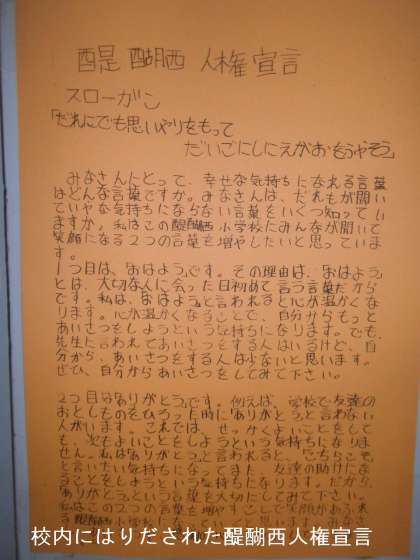 醍醐西 人権宣言
スローガン
「だれにでも思いやりをもって
だいごにしにえがおをふやそう」
みなさんにとって、幸せな気持ちになれる言葉
はどんな言葉ですか。みなさんは、だれもが聞い
ていやな気持ちにならない言葉をいくつ知ってい
ますか。私はこの醍醐西小学校にみんなが聞いて
笑顔になる2つの言葉を増やしたいと思っていま
す。
1つ目は、「おはよう」です。その理由は、「おはよう」
とは、大切な人に会った日初めて言う言葉だから
です。私は、「おはよう」と言われると心が温かくな
ります。心が温かくなることで、自分からもっと
あいさつをしようという気持ちになります。でも、
先生に言われてあいさつをする人はいるけど、自
分から、あいさつをする人は少ないと思います。
ぜひ、自分からあいさつをしてみて下さい。
2つ目は「ありがとう」です。例えば、学校で友達の
おとしものをひろった時に「ありがとう」と言わない
人がいます。これでは、せっかくよいことをして
も、次もよいことをしようという気持ちになりま
せん。私は「ありがとう」と言われると、「こちらこそ」
と言いたい気持ちになってまた、友達の助けにな
ることをしようという気持ちになります。だから、
「ありがとう」という言葉を大切にしてみて下さい。
私はこの2つの言葉を増やすことで笑顔があふれ
る醍醐西小学校
校内にはりだされた醍醐西人権宣言